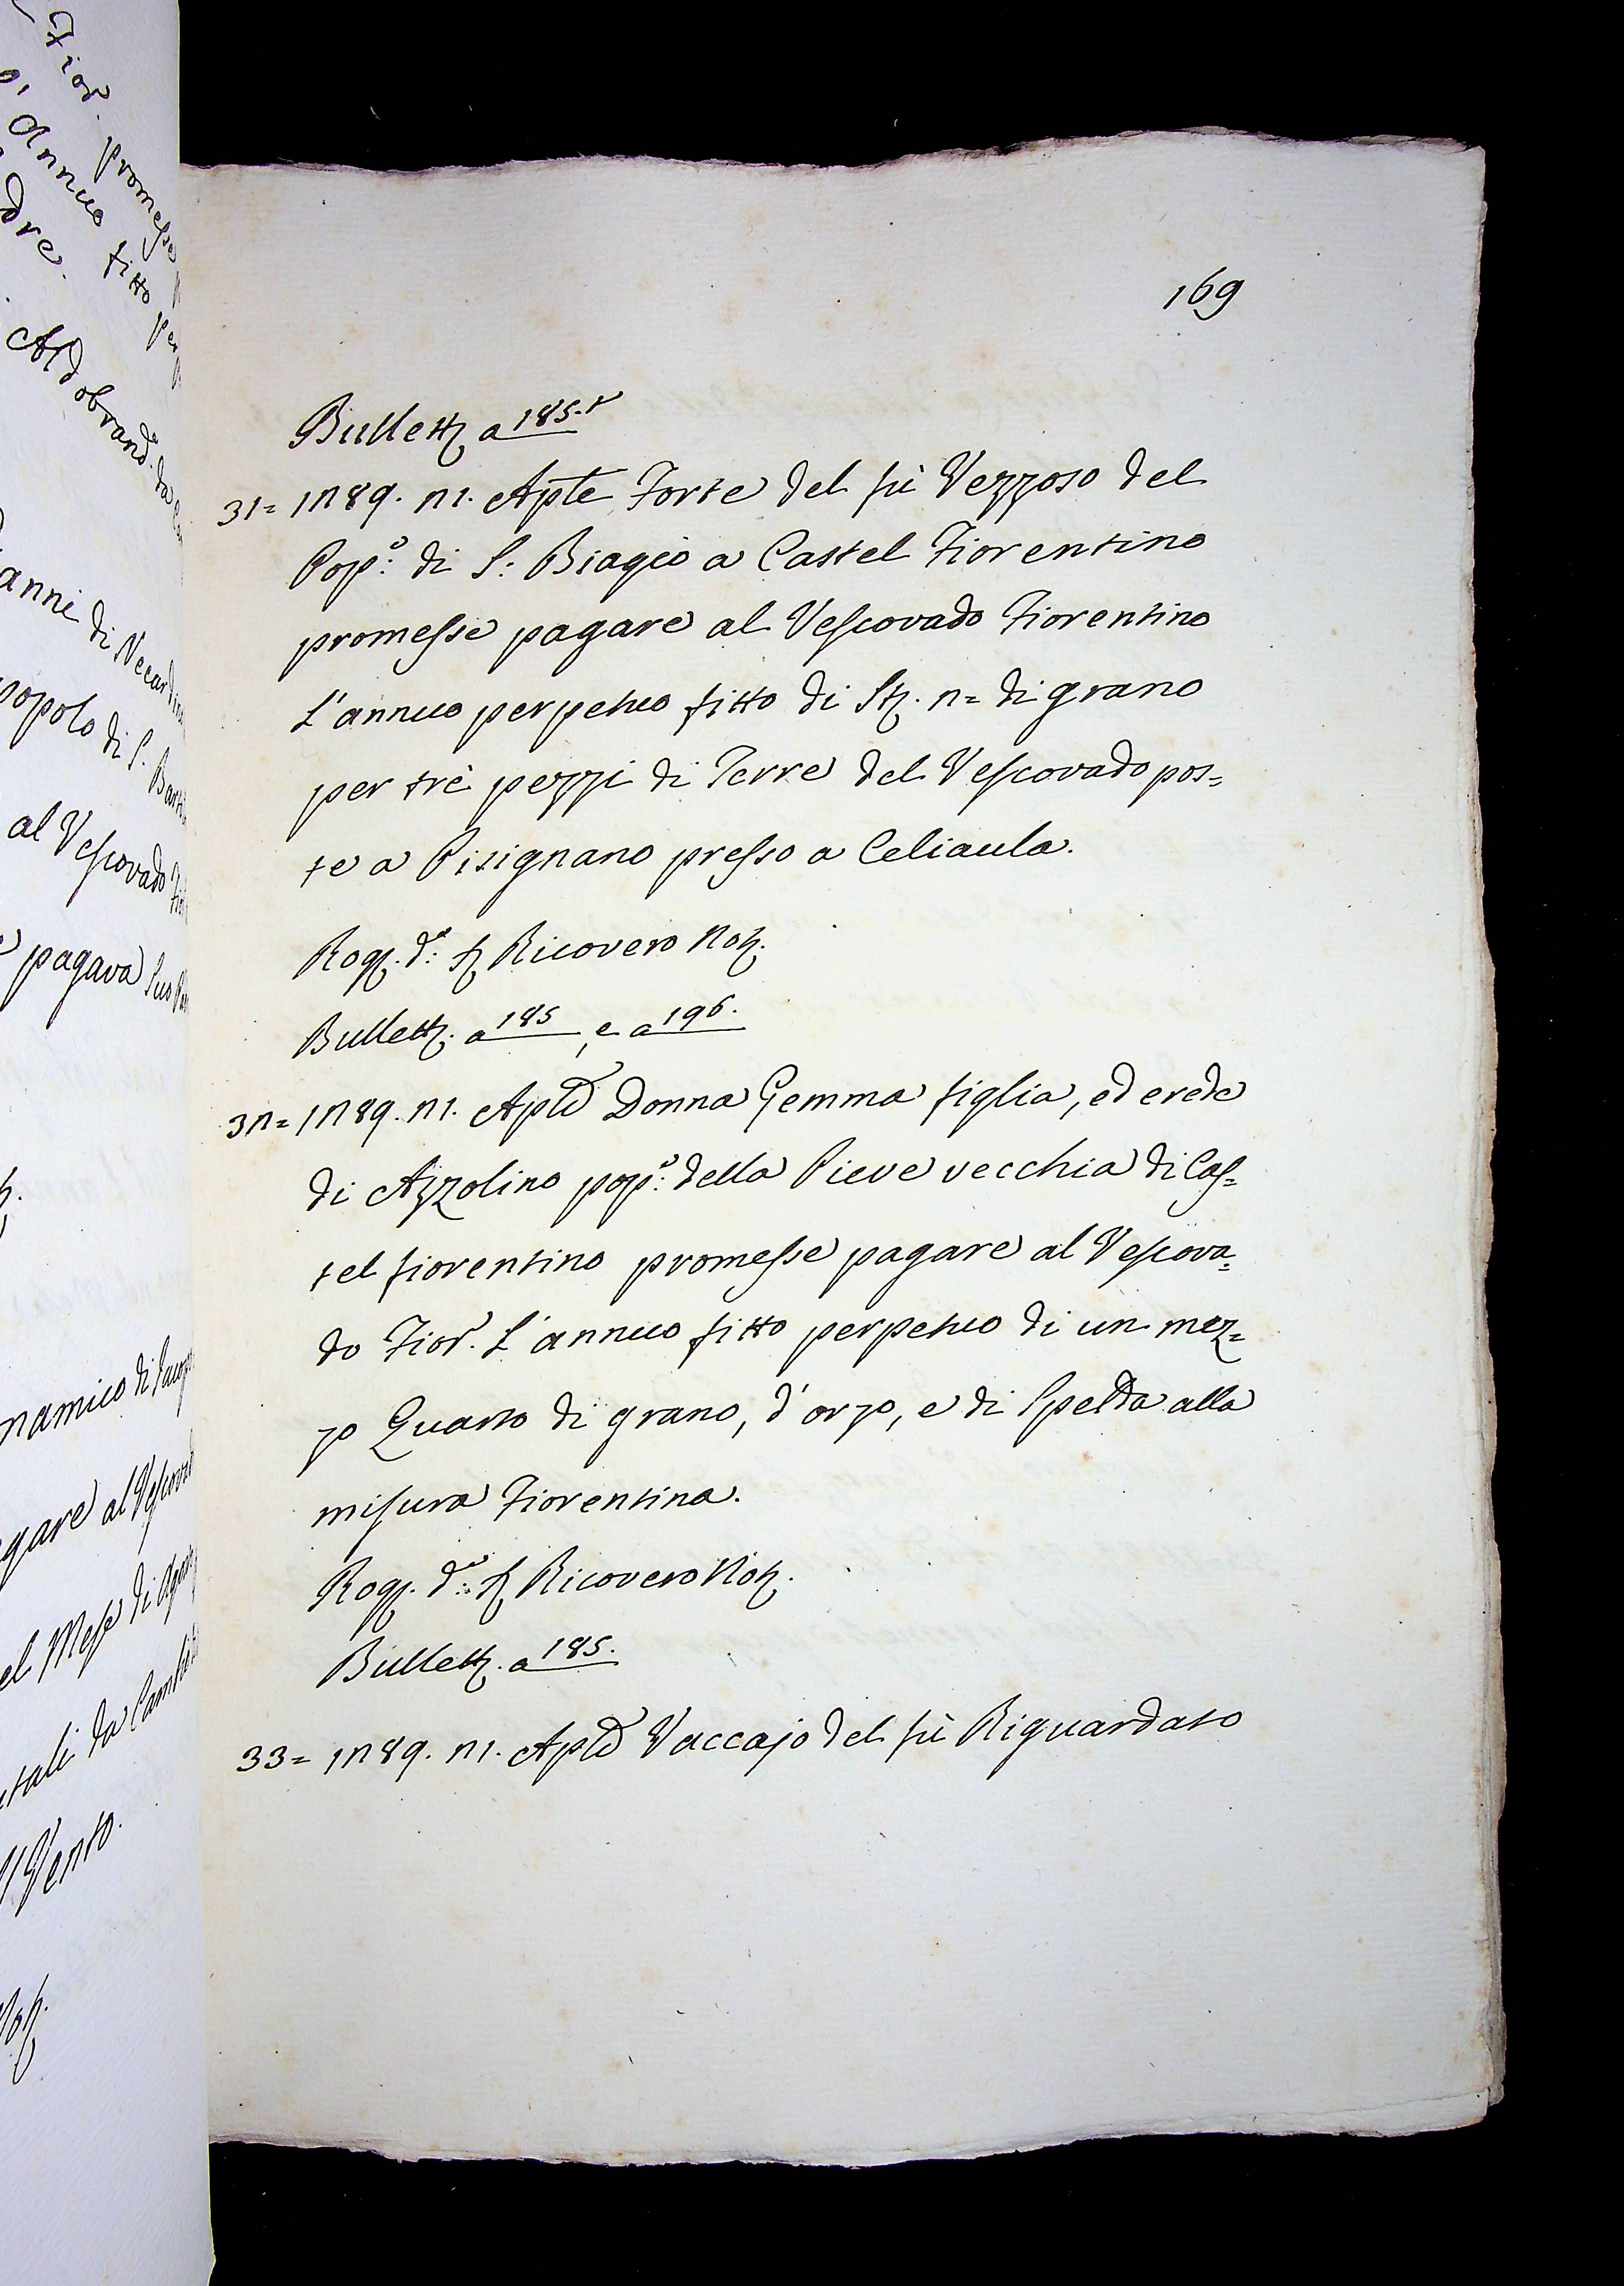 169
Bullett. a 185. t
31= 1289. 21. Aple Forte del fù Vezzoso del
Pop.o di S: Biagio a Castel Fiorentino
promesse pagare al Vescovado Fiorentino
L'annuo perpetuo fitto di St. 2= di grano
per trè pezzi di Terre del Vescovado pos=
te a Pisignano presso a Celiaula.
Rog. d.o Ricovero Not.
Bullett. a 185, e a 196.
32= 1289. 21. Aple Donna Gemma figlia, ed erede
di Azzolino pop.o della Pieve vecchia di Cas=
tel fiorentino promesse pagare al Vescova=
do Fior. L'annuo fitto perpetuo di un mez=
zo Quarto di grano, d'orzo, e di Spelda alla
misura Fiorentina.
Rog. d.o Ricovero Not.
Bullett. a 185.
33= 1289. 21. Aple Vaccajo del fù Riguardato
Fior. promesse
annuo fitto per
dre.
Aldobrand. da
anni di
popolo di S. Bart
al Vescovado
pagava suo
namico di
gare al Vescovad
el Mese di Agos
tali da
Vento.
Not.